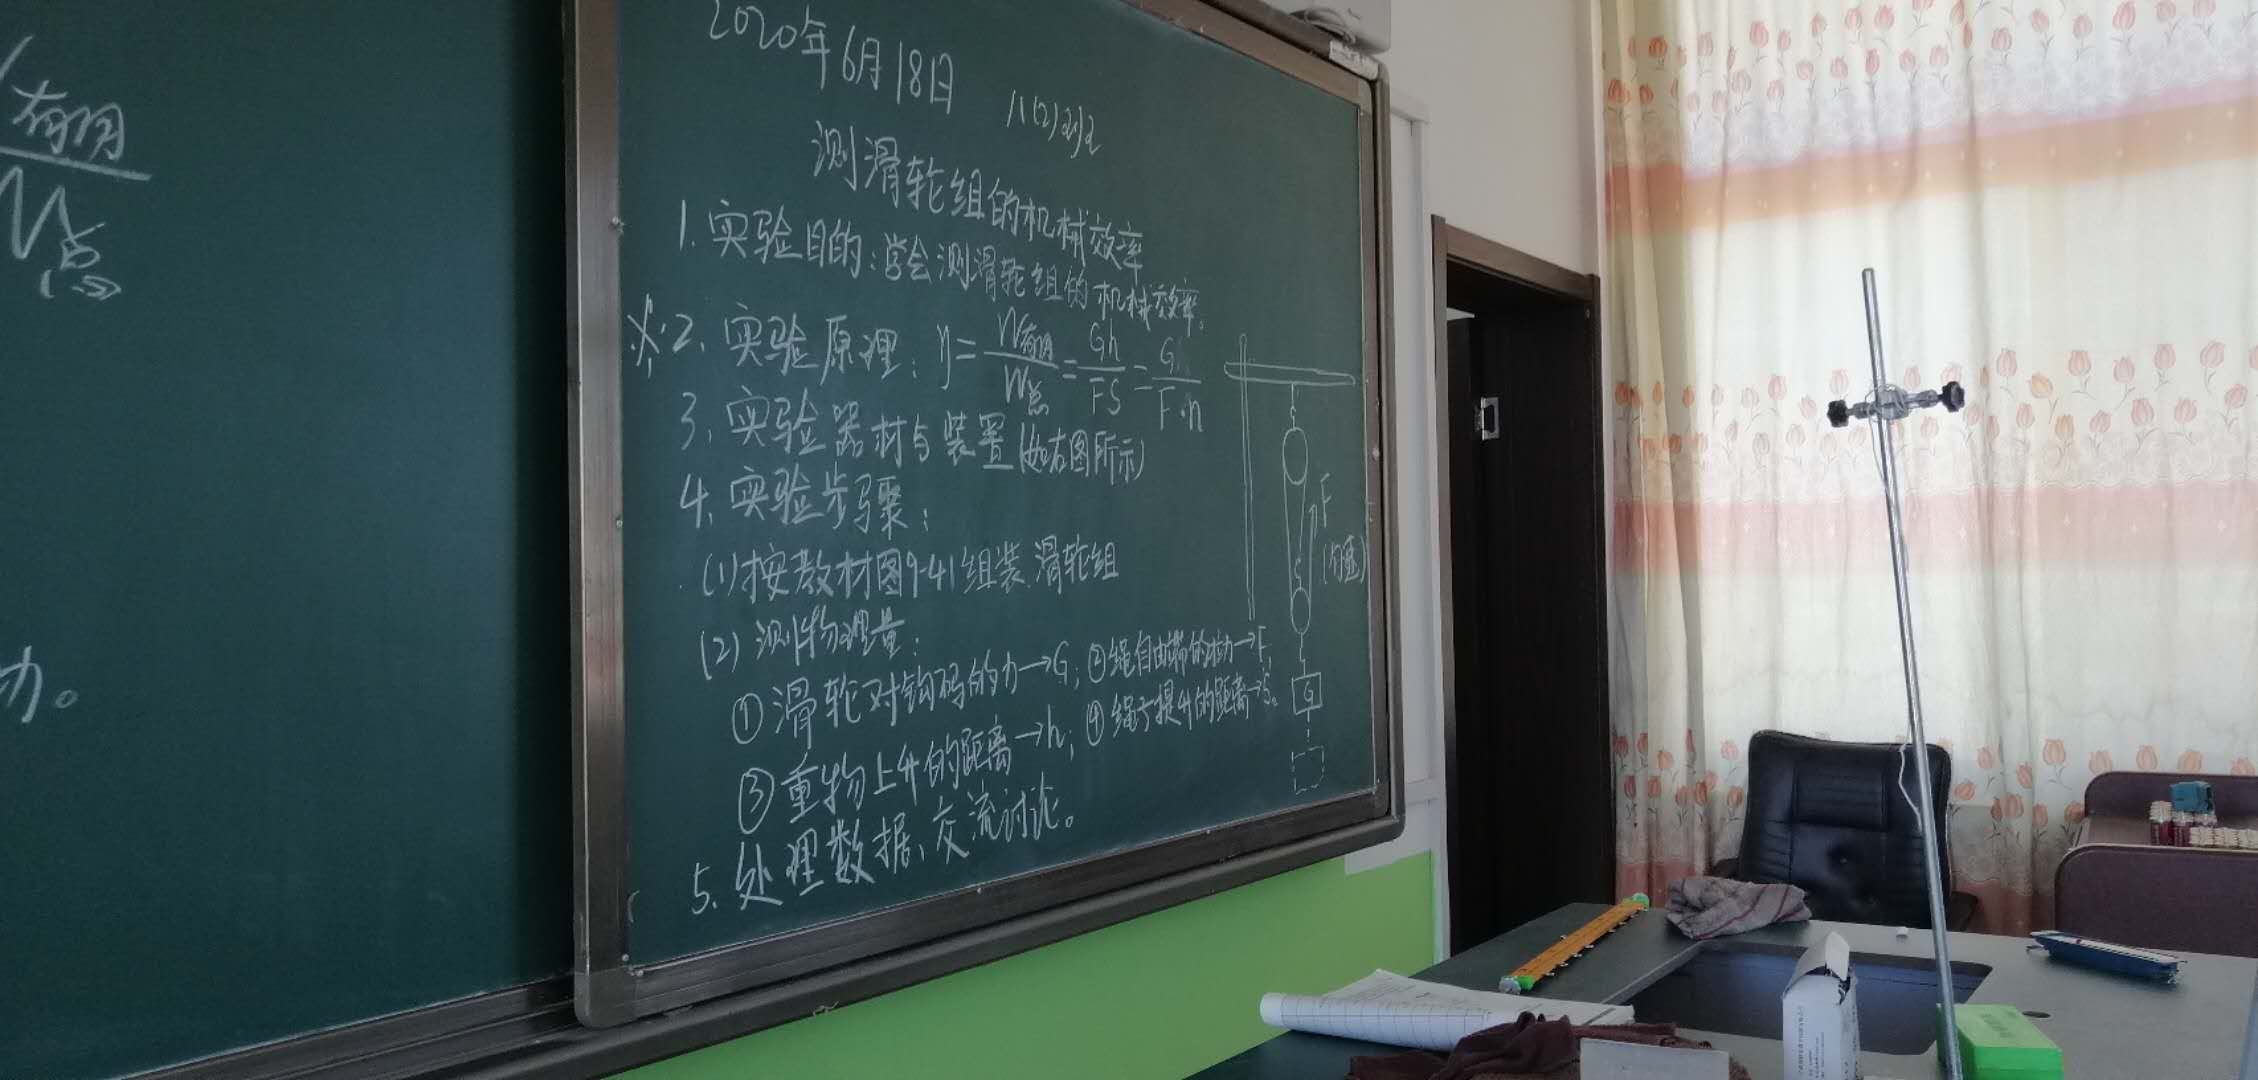 有用
W总
功。
2020年6月18日 八(2)班
测滑轮组的机械效率
1. 实验目的:学会测滑轮组的机械效率。
※2. 实验原理: η=W有用/W总=Gh/FS=G/F·n
3. 实验器材与装置(如右图所示)
4. 实验步骤:
(1)按教材图9-41组装滑轮组
(2) 测物理量:
①滑轮对钩码的力→G; ②绳自由端的拉力→F;
③重物上升的距离→h; ④绳子提升的距离→S。
5. 处理数据、交流讨论。
F
(匀速)
G